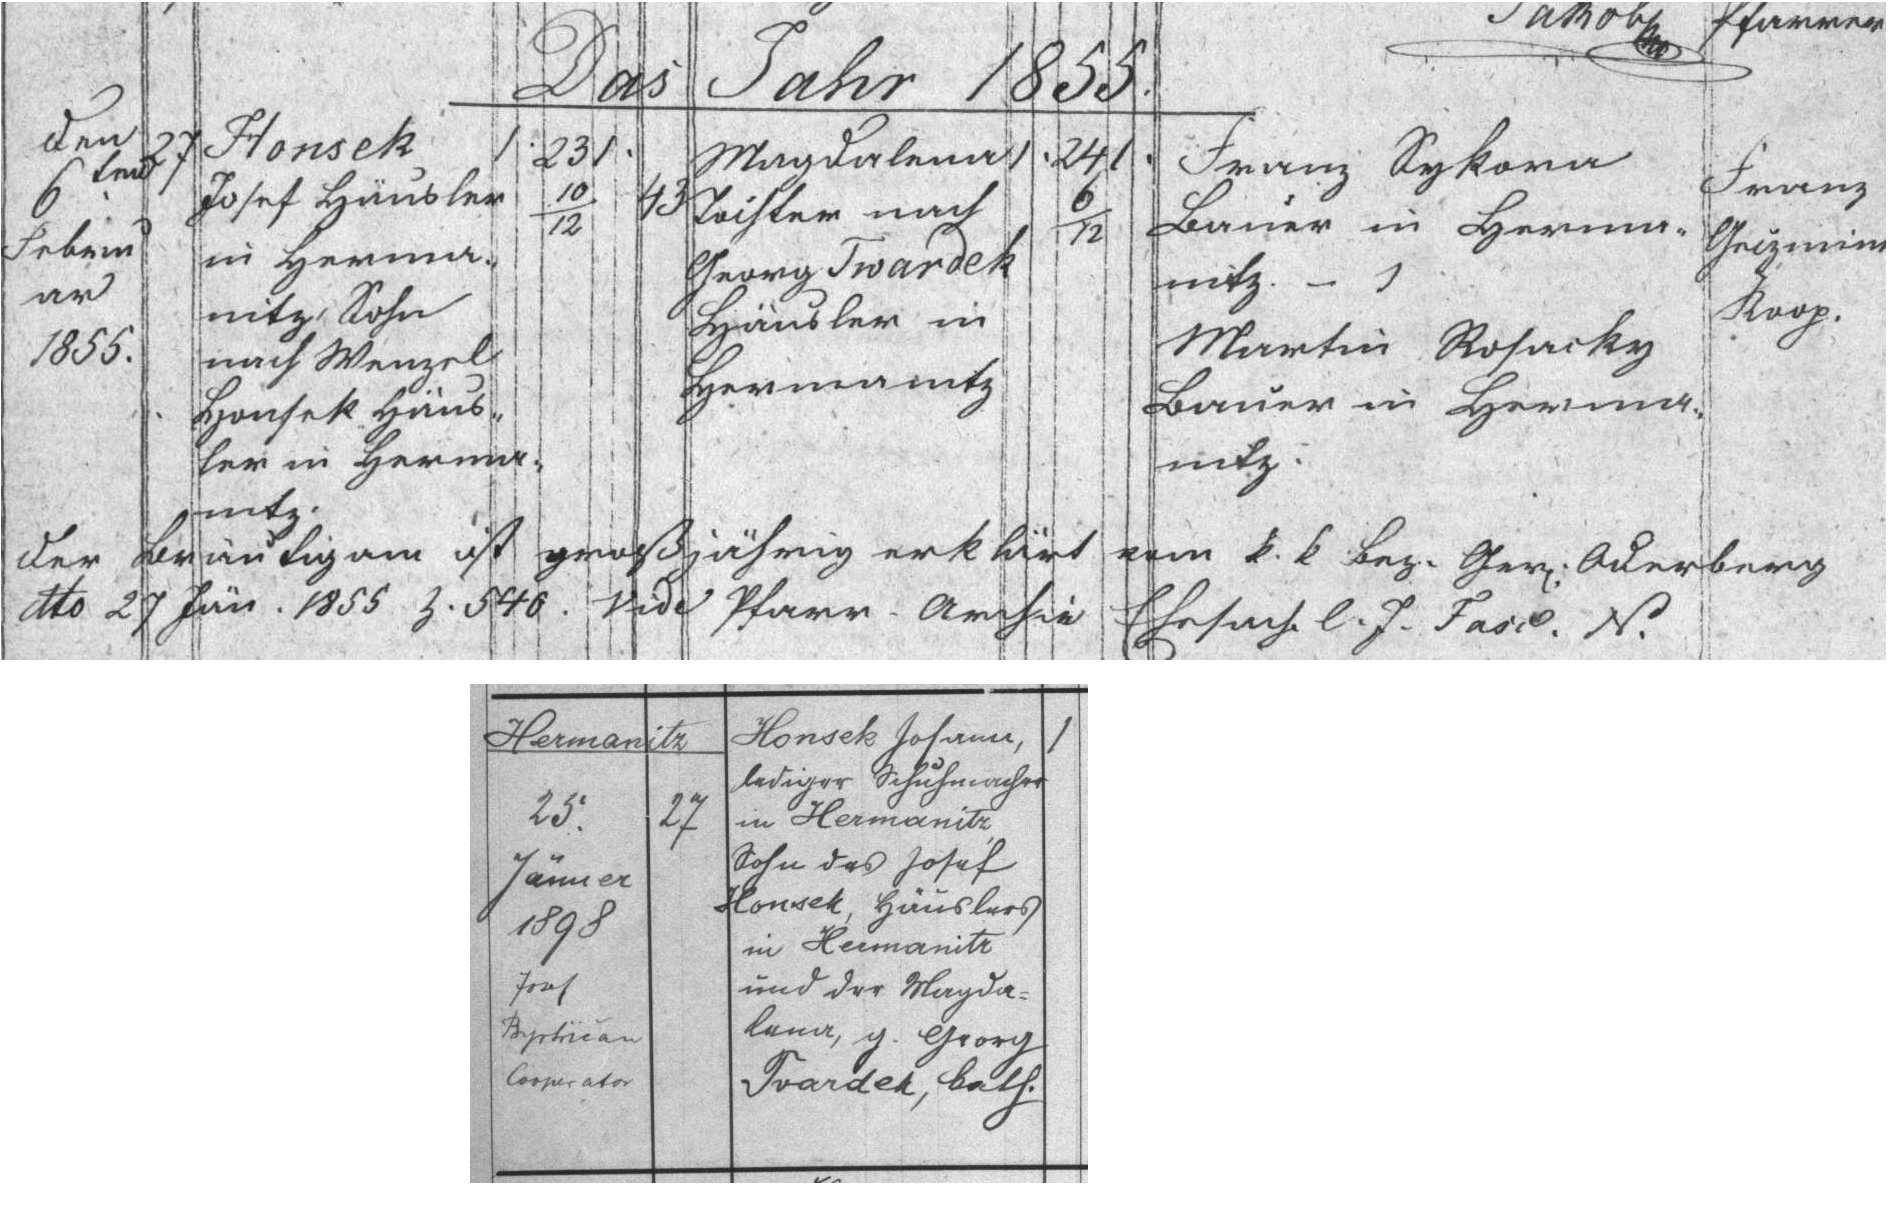 Jakob Pfarrer
Das Jahr 1855.
den 6ten Februar 1855.
27
Honsek
Josef Häusler
in Herma-
nitz, Sohn
nach Wenzel
Honsek Häus-
ler in Herma-
nitz.
1. 23 1.
10/12
43
Magdalena
Tochter nach
Georg Twardek
Häusler in
Hermanitz
1. 24 1.
6/12
Franz Sykora
Bauer in Herma-
nitz. - 1
Martin Rosacky
Bauer in Herma-
nitz.
Franz
Koop.
Der Bräutigam ist großjährig erklärt vom k. k. Bez. Ger. Oderberg
dtto 27 Jän. 1855 Z. 546. Vide Pfarr-Archiv Ehesach. l. J. Fasc. N.
Hermanitz
25.
Jänner
1898
Josef
Bystřičan
Cooperator
27
Honsek Johann,
lediger Schuhmacher
in Hermanitz,
Sohn des Josef
Honsek, Häuslers
in Hermanitz
und der Magda=
lena, g. Georg
Tvardek, kath.
1